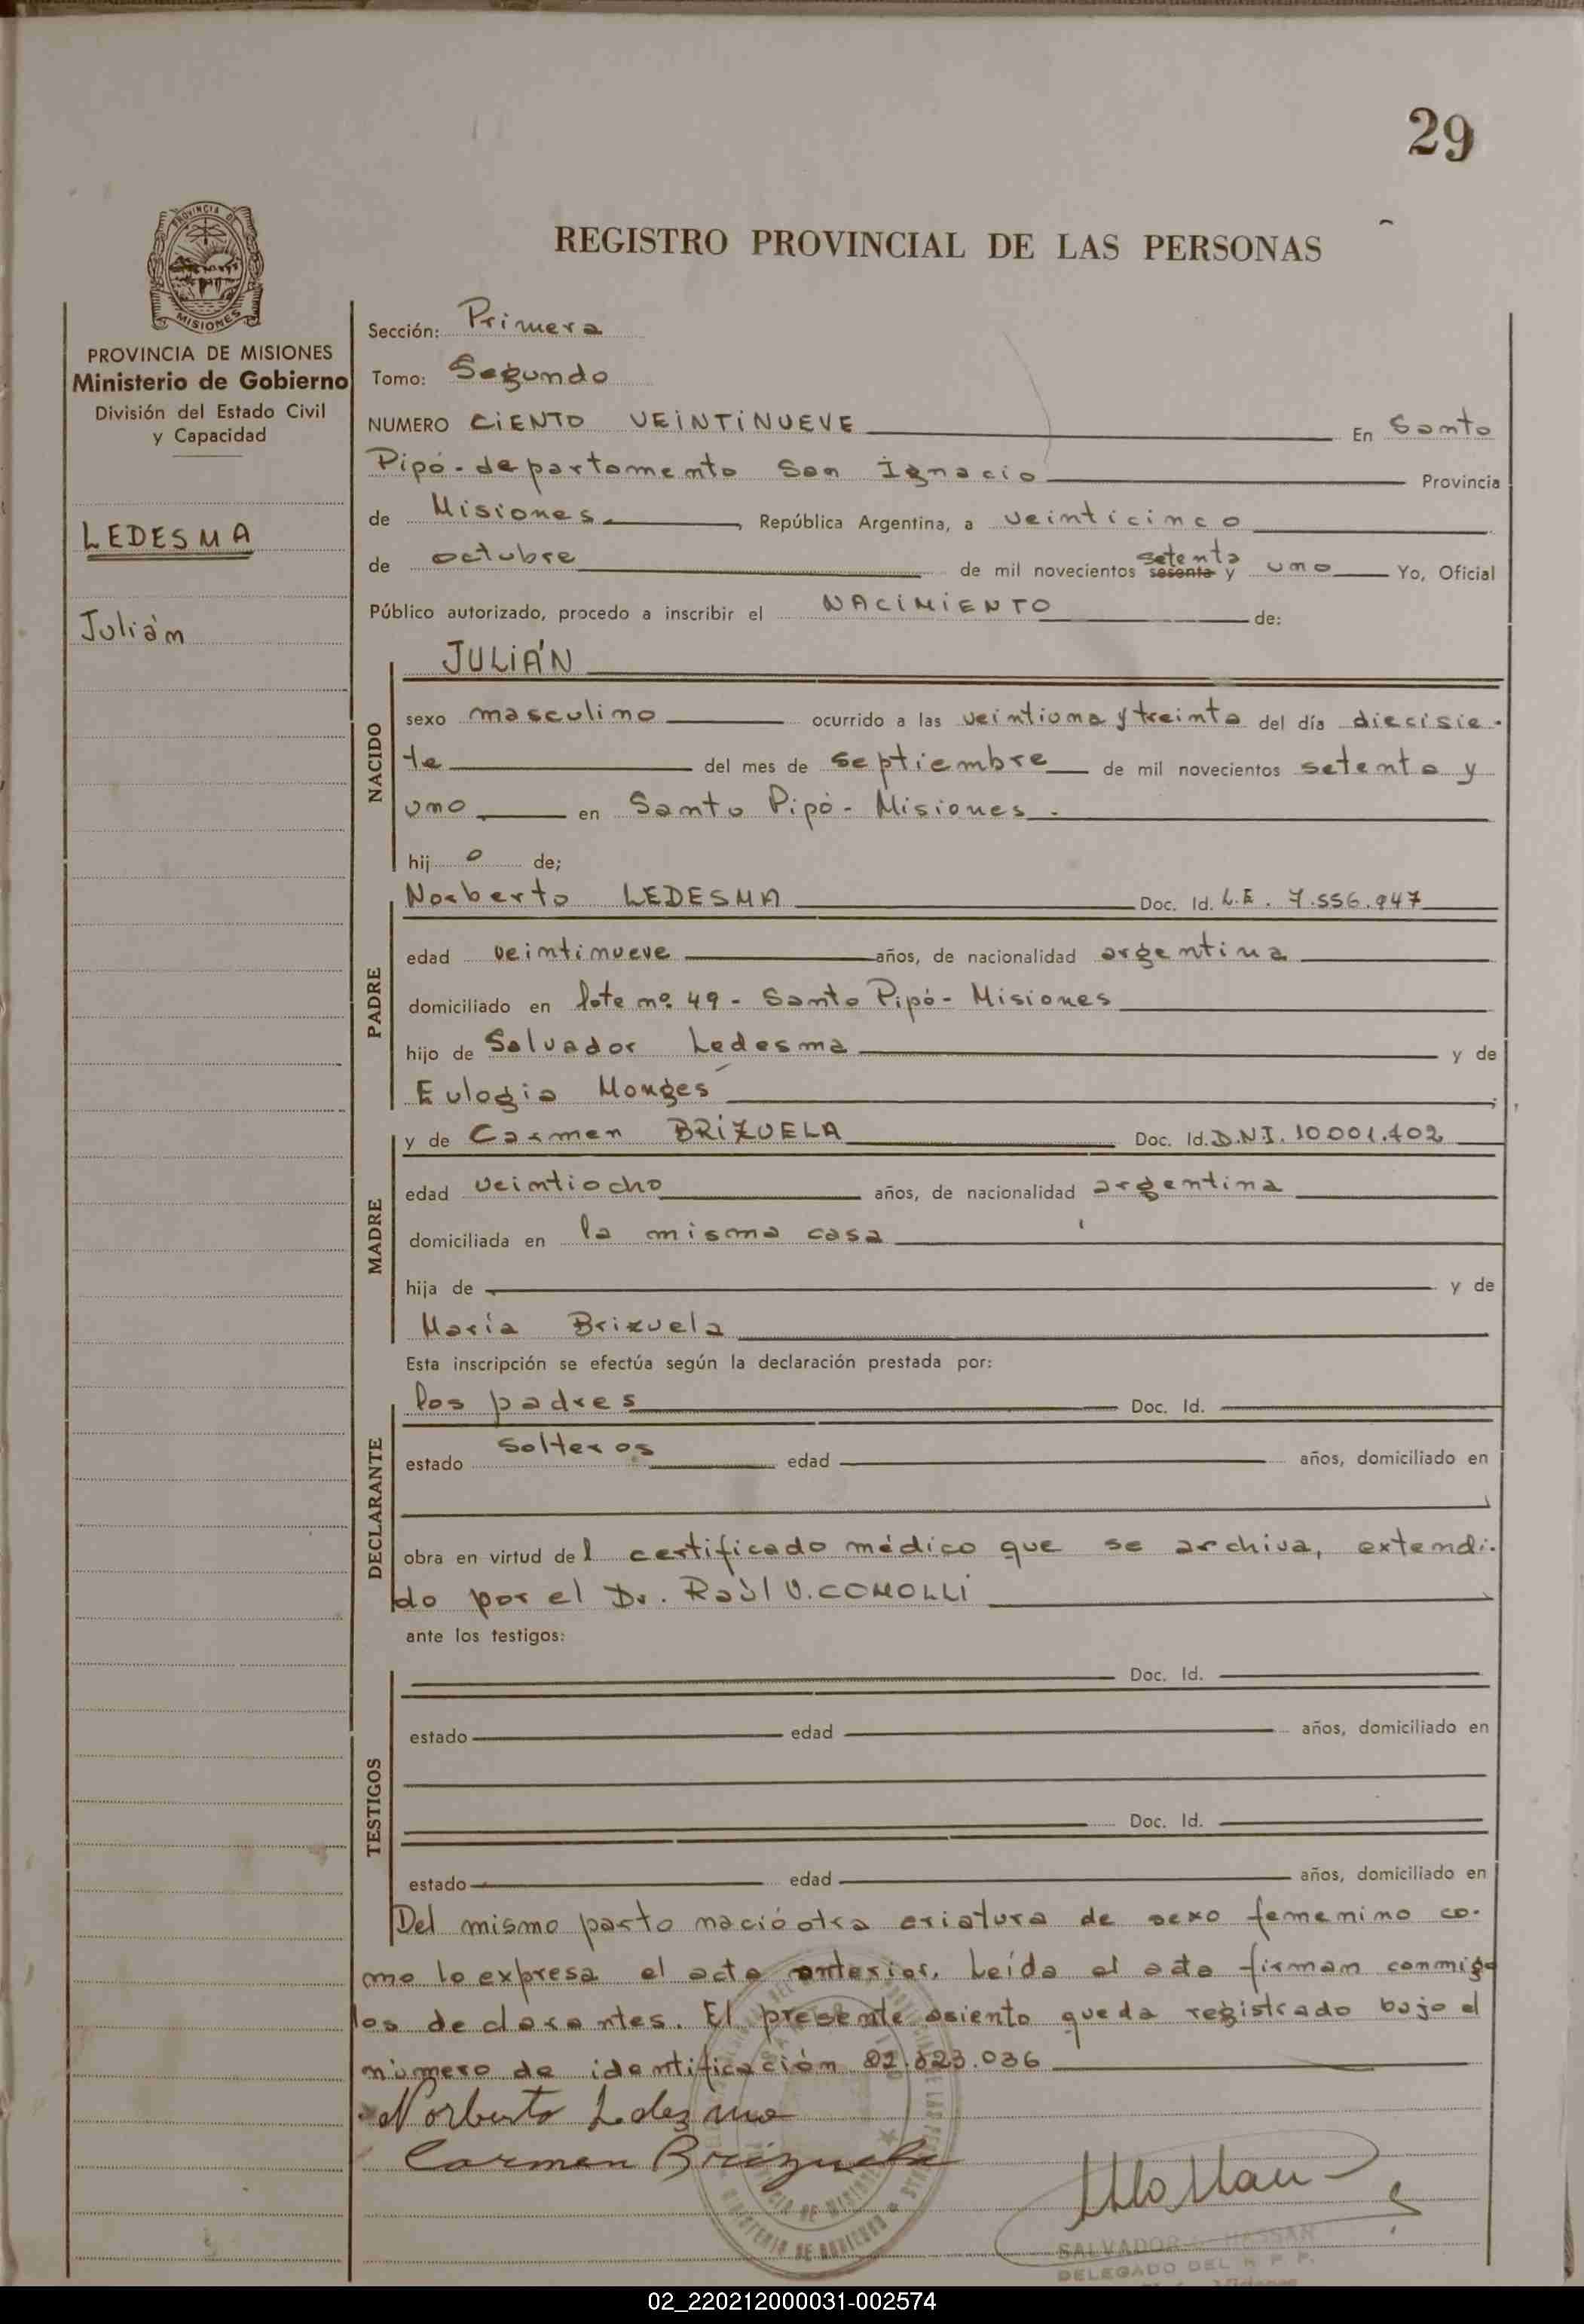 29
REGISTRO PROVINCIAL DE LAS PERSONAS
PROVINCIA DE
MISIONES
PROVINCIA DE MISIONES
Ministerio de Gobierno
División del Estado Civil
y Capacidad
LEDESMA
Julián
Sección: Primera
Tomo: Segundo
NUMERO CIENTO VEINTINUEVE En Santo
Pipó - departamento San Ignacio Provincia
de Misiones, República Argentina, a veinticinco
de octubre de mil novecientos sesenta setenta y uno Yo, Oficial
Público autorizado, procedo a inscribir el NACIMIENTO de:
JULIÁN
NACIDO
sexo masculino ocurrido a las veintiuna y treinta del día diecisie-
te del mes de septiembre de mil novecientos setenta y
uno en Santo Pipó - Misiones.
hijo de;
PADRE
Norberto LEDESMA Doc. Id. L.E. 7.556.947
edad veintinueve años, de nacionalidad argentina
domiciliado en lote nº 49 - Santo Pipó - Misiones
hijo de Salvador Ledesma y de
Eulogia Monges;
MADRE
y de Carmen BRIZUELA Doc. Id. D.N.I. 10.001.402
edad veintiocho años, de nacionalidad argentina
domiciliada en la misma casa
hija de y de
María Brizuela
Esta inscripción se efectúa según la declaración prestada por:
DECLARANTE
los padres Doc. Id.
estado solteros edad años, domiciliado en
obra en virtud del certificado médico que se archiva, extendi-
do por el Dr. Raúl V. COMOLLI
ante los testigos:
TESTIGOS
Doc. Id.
estado edad años, domiciliado en
Doc. Id.
estado edad años, domiciliado en
Del mismo parto nació otra criatura de sexo femenino co-
mo lo expresa el acta anterior. Leída el acta firman conmigo
los declarantes. El presente asiento queda registrado bajo el
número de identificación 22.823.036
Norberto Ledezma
Carmen Brizuela
SALVADOR HASSAN
DELEGADO DEL R P P.
02_220212000031-002574